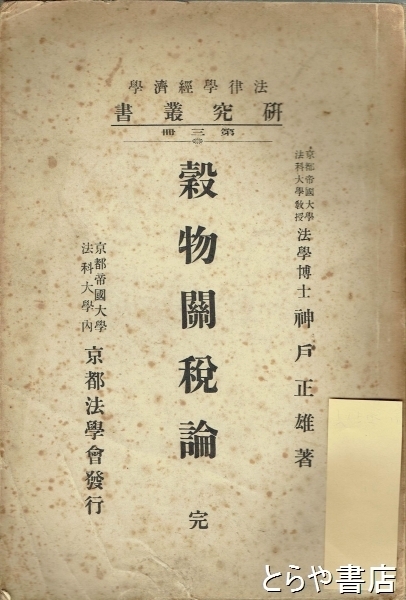 學濟經學律法
書叢究研
冊三第
京都帝國大學
法科大學教授
法學博士 神戶正雄著
穀物關稅論 完
京都帝國大學
法科大學內
京都法學會發行
とらや書店